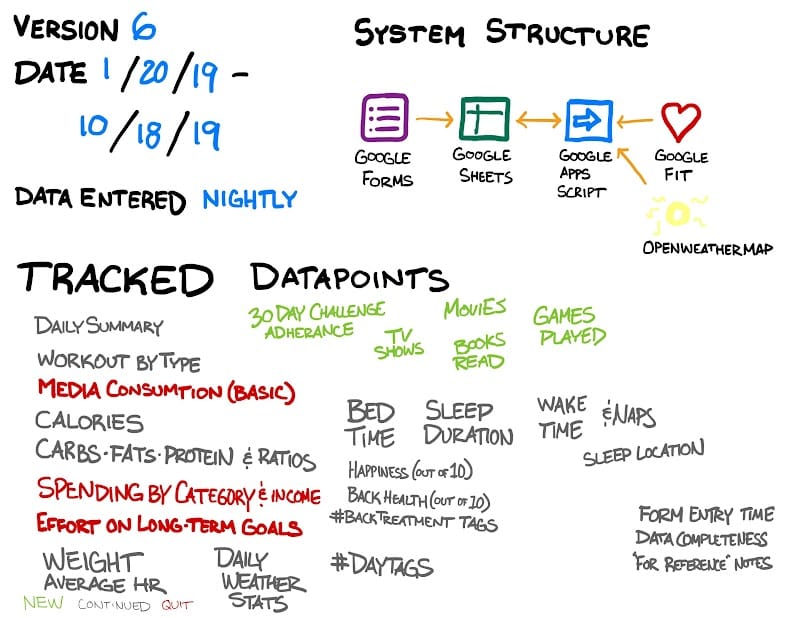 VERSION 6
DATE 1/20/19 -
10/18/19
DATA ENTERED NIGHTLY
SYSTEM STRUCTURE
GOOGLE FORMS
GOOGLE SHEETS
GOOGLE APPS SCRIPT
GOOGLE FIT
OPENWEATHERMAP
TRACKED DATAPOINTS
DAILY SUMMARY
WORKOUT BY TYPE
MEDIA CONSUMTION (BASIC)
CALORIES
CARBS·FATS·PROTEIN & RATIOS
SPENDING BY CATEGORY & INCOME
EFFORT ON LONG-TERM GOALS
WEIGHT
AVERAGE HR
DAILY
WEATHER
STATS
#DAYTAGS
30 DAY CHALLENGE
ADHERANCE
TV
SHOWS
MOVIES
BOOKS
READ
GAMES
PLAYED
BED
TIME
SLEEP
DURATION
WAKE
TIME
& NAPS
SLEEP LOCATION
HAPPINESS (OUT OF 10)
BACK HEALTH (OUT OF 10)
#BACKTREATMENT TAGS
FORM ENTRY TIME
DATA COMPLETENESS
"FOR REFERENCE" NOTES
NEW CONTINUED QUIT